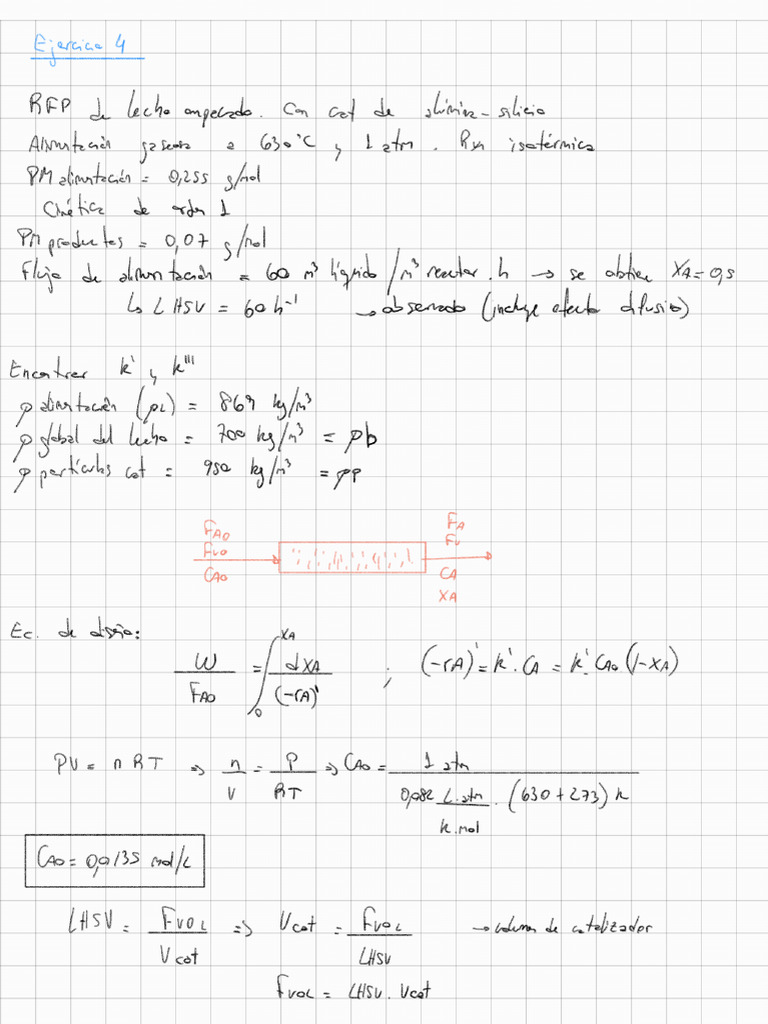 Ejercicio 4
RFP de lecho empacado. Con cat de alúmina-silicio
Alimentación gaseosa a 630°C y 1 atm. Rxn isotérmica
PM alimentación = 0,255 g/mol
Cinética de orden 1
PM productos = 0,07 g/mol
Flujo de alimentación = 60 m³ líquido/m³ reactor.h → se obtiene XA=0,5
↳ LHSV = 60 h⁻¹ → observado (incluye efecto difusivo)
Encontrar k' y k'''
ρ alimentación (ρL) = 869 kg/m³
ρ global del lecho = 700 kg/m³ = ρb
ρ partículas cat = 950 kg/m³ = ρp
FA0 FA
Fv0 Fv
CA0 CA
XA
Ec. de diseño:
W/FA0 = ∫₀^XA dXA/(-rA)' ; (-rA)' = k'.CA = k'.CA0(1-XA)
PV = nRT => n/V = P/RT => CA0 = 1 atm / (0,082 L.atm/k.mol . (630+273) k)
CA0 = 0,0135 mol/L
LHSV = FV0L/Vcat => Vcat = FV0L/LHSV → volumen de catalizador
FV0L = LHSV.Vcat